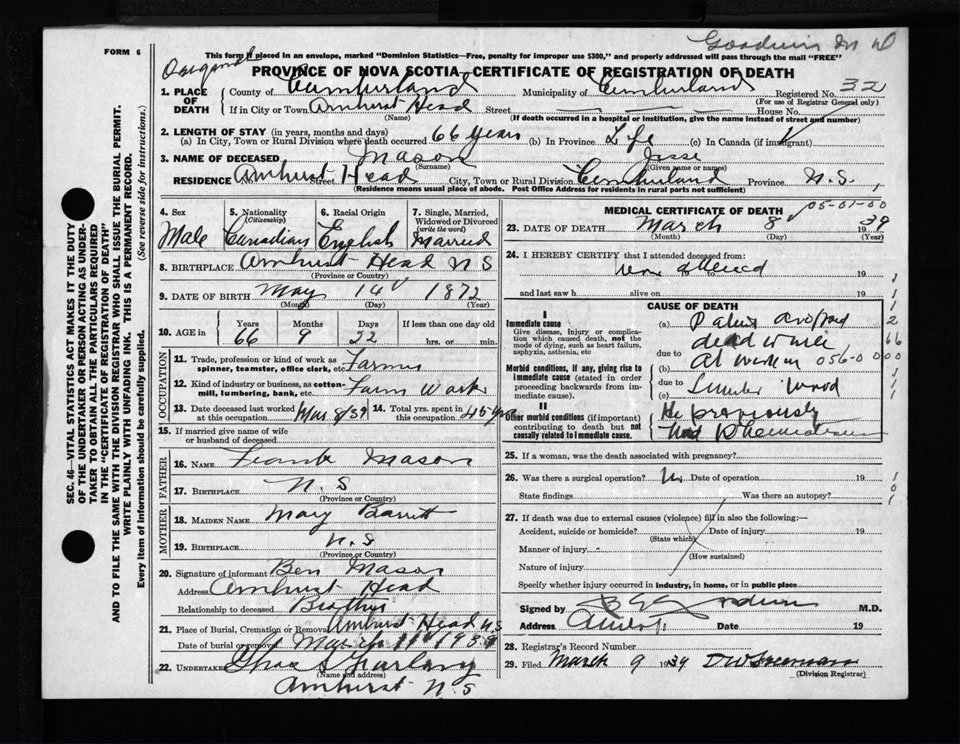 Goodwin M D
FORM 6
This form if placed in an envelope, marked "Dominion Statistics—Free, penalty for improper use $300," and properly addressed will pass through the mail "FREE"
PROVINCE OF NOVA SCOTIA—CERTIFICATE OF REGISTRATION OF DEATH
1. PLACE OF DEATH
County of Cumberland Municipality of Cumberland Registered No. 32
(For use of Registrar General only)
If in City or Town Amhurst Head Street House No.
(Name) (If death occurred in a hospital or institution, give the name instead of street and number)
2. LENGTH OF STAY (in years, months and days)
(a) In City, Town or Rural Division where death occurred 66 years (b) In Province Life (c) In Canada (if immigrant)
3. NAME OF DECEASED Mason Jesse
(Surname) (Given name or names)
RESIDENCE No. Amhurst Street Head City, Town or Rural Division Cumberland Province N.S.
(Residence means usual place of abode. Post Office Address for residents in rural parts not sufficient)
4. Sex Male
5. Nationality (Citizenship) Canadian
6. Racial Origin English
7. Single, Married, Widowed or Divorced (write the word) Married
8. BIRTHPLACE Amhurst Head N S
(Province or Country)
9. DATE OF BIRTH May 14 1872
(Month) (Day) (Year)
10. AGE in Years Months Days If less than one day
66 9 22 hrs. or min.
OCCUPATION
11. Trade, profession or kind of work as spinner, teamster, office clerk, etc. Farmer
12. Kind of industry or business, as cotton-mill, lumbering, bank, etc. Farm Work
13. Date deceased last worked at this occupation Mar 8/39 14. Total yrs. spent in this occupation 45 yrs
15. If married give name of wife or husband of deceased
FATHER
16. NAME Frank Mason
17. BIRTHPLACE N. S
(Province or Country)
MOTHER
18. MAIDEN NAME Mary Barrett
19. BIRTHPLACE N. S
(Province or Country)
20. Signature of informant Ben Mason
Address Amhurst Head
Relationship to deceased Brother
21. Place of Burial, Cremation or Removal Amhurst Head N.S
Date of burial or removal March 11 1939
22. UNDERTAKER
(Name and address)
Amhurst N.S
MEDICAL CERTIFICATE OF DEATH 05-01-00
23. DATE OF DEATH March 8 1939
(Month) (Day) (Year)
24. I HEREBY CERTIFY that I attended deceased from:
19
and last saw h alive on 19
CAUSE OF DEATH
I
Immediate cause
Give disease, injury or complication which caused death, not the mode of dying, such as heart failure, asphyxia, asthenia, etc
Morbid conditions, if any, giving rise to immediate cause (stated in order proceeding backwards from immediate cause).
II
Other morbid conditions (if important) contributing to death but not causally related to immediate cause.
(a) Patient dropped
dead while
due to
(b) at work in 056-0
due to
(c) Lumber Wood
He previously
had Rheumatism
25. If a woman, was the death associated with pregnancy?
26. Was there a surgical operation? Date of operation 19
State findings Was there an autopsy?
27. If death was due to external causes (violence) fill in also the following:—
Accident, suicide or homicide? Date of injury 19
(State which)
Manner of injury
(How sustained)
Nature of injury
Specify whether injury occurred in industry, in home, or in public place
Signed by Goodwin M.D.
Address Date 19
28. Registrar's Record Number
29. Filed March 9 1939
(Division Registrar)
SEC. 46—VITAL STATISTICS ACT MAKES IT THE DUTY
OF THE UNDERTAKER OR PERSON ACTING AS UNDERTAKER TO OBTAIN ALL THE PARTICULARS REQUIRED
IN THE "CERTIFICATE OF REGISTRATION OF DEATH"
AND TO FILE THE SAME WITH THE DIVISION REGISTRAR WHO SHALL ISSUE THE BURIAL PERMIT.
WRITE PLAINLY WITH UNFADING INK. THIS IS A PERMANENT RECORD.
Every item of information should be carefully supplied. (See reverse side for instructions.)